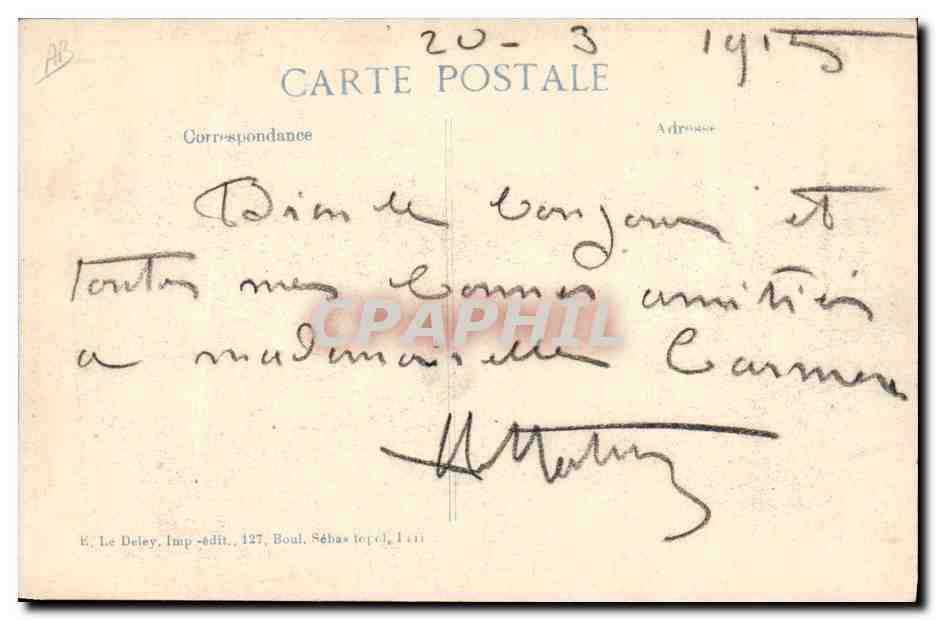 AB
20 - 3 1915
CARTE POSTALE
Correspondance
Adresse
Bien le bonjour et
toutes mes bonnes amitiés
a mademoiselle Carmen
CPAPHIL
E. Le Deley, Imp-édit., 127, Boul. Sébastopol, Paris